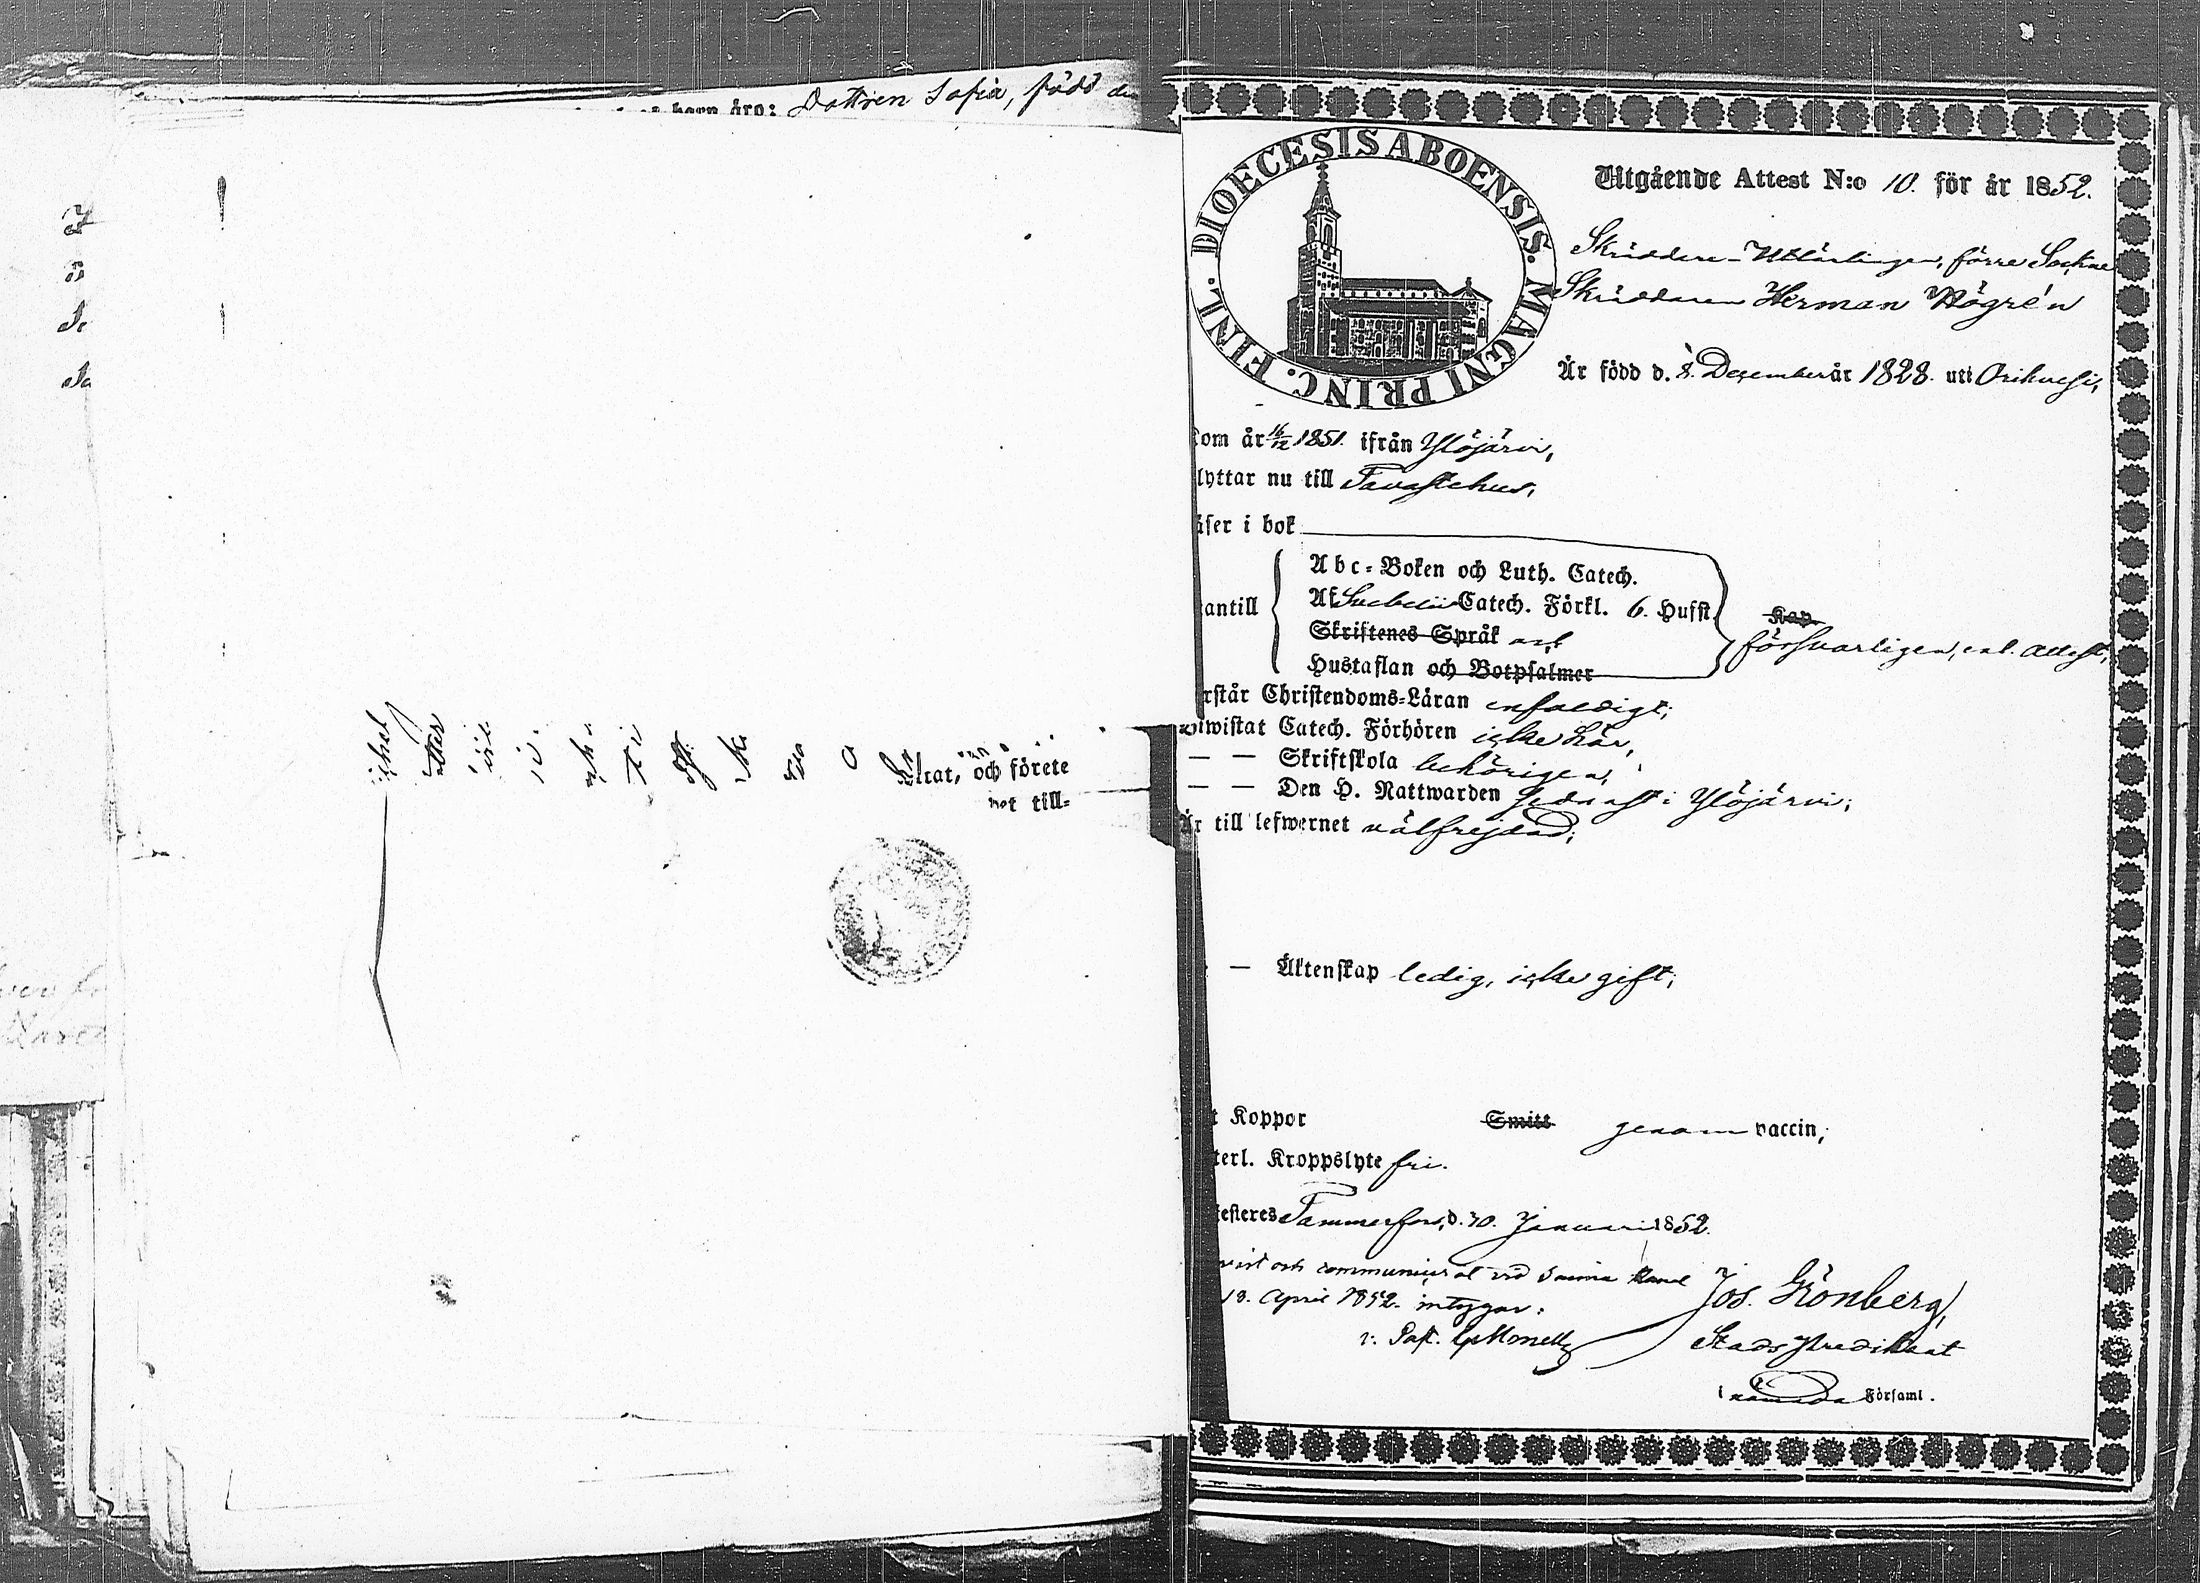 barn äro: Dottren Sofia, född
och förete
till=
DIOECESIS ABOENSIS. MAGNI PRINC. FINL.
Utgående Attest N:o 10. för år 1852.
Skräddare-Utlärlingen, förre Sockne
Skräddaren Herman Högrén
Är född d. 8. December år 1828. uti Orihvesi,
kom år 16/12 1851. ifrån Ylöjärvi,
lyttar nu till Tavastehus,
äser i bok
antill
Abc-Boken och Luth. Catech.
Af Svebelii Catech. Förkl. 6. Hufst.
Skriftenes Språk och
Hustaflan och Botpsalmer
Kap.
försvarligen, enl. Attest,
rstår Christendoms-Läran enfaldigt;
iwistat Catech. Förhören icke här,
— — Skriftskola behörigen,
— — Den H. Nattwarden sednast i Ylöjärvi;
Är till lefwernet välfrejdad;
— Äktenskap ledig, icke gift;
t Koppor Smitt genom vaccin,
terl. Kroppslyte fri.
testeres Tammerfors, d. 30. Januari 1852.
och communicerat vid Saima Kanal
18. April 1852. intygar:
v. Past.
Jos. Grönberg,
Stads Predikant
i nämnda Församl.